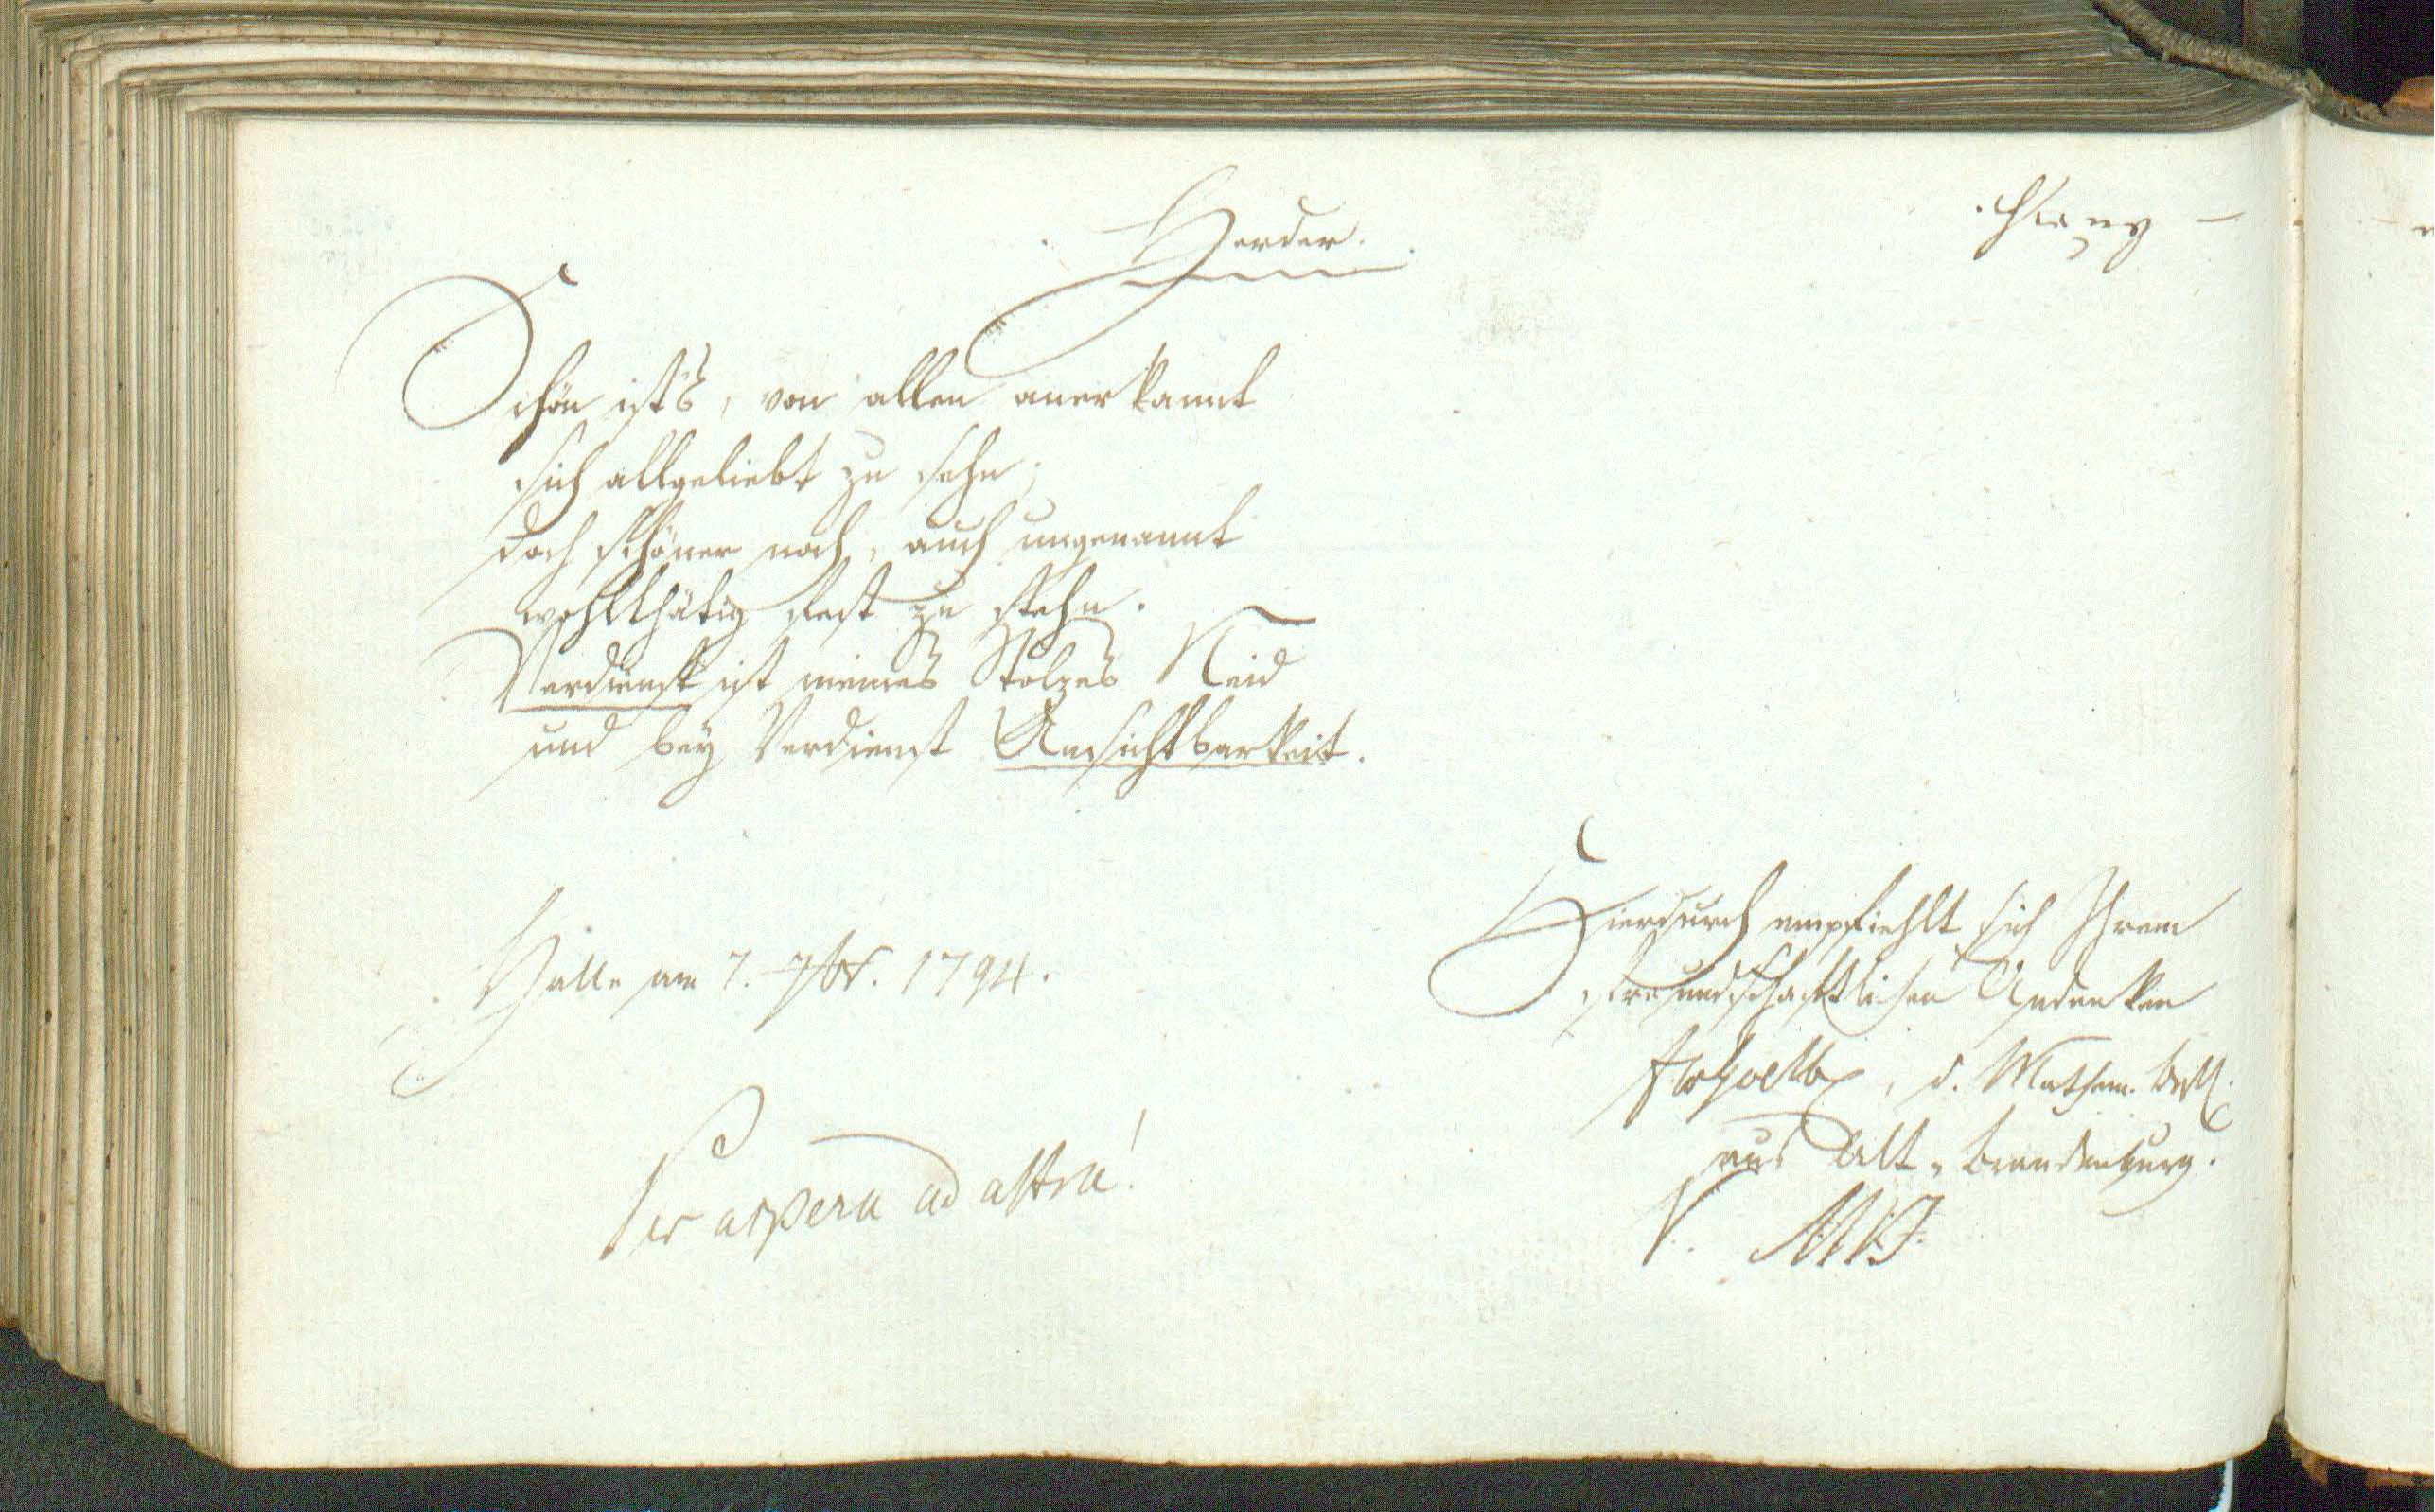 Herder.
Schön ist's, von allen anerkannt
sich allgeliebt zu sehn;
doch schöner noch, auch ungenannt
wohlthätig fest zu stehn.
Verdienst ist meines Stolzes Neid
und bey Verdienst Unsichtbarkeit.
Halle am 7. 1794.
Per aspera ad astra!
Hierdurch empfiehlt sich Ihrem
freundschaftlichen Andenken
d. Mathem. Befl.
aus Alt-Brandenburg.
V.